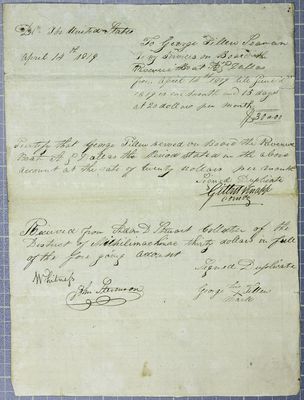 The United States
April 14th 1819
To George Fillew Seaman
To my Services on Board the
Revenue Boat A J Dallas
from April 14th 1819 till June
1819 is one Month and 15 days
at 20 dollars per month
$30.00
I certify that George Fillew served on Board the Revenue
Boat A J Dallas the Period Stated in the above
account at the rate of twenty dollars per month
Signed Duplicate
Gillett Knapp
Received from Adam D Stuart Collector of the
District of Michilimackinac thirty dollars in full
of the fore going account
Signed Duplicate
Whitness
John Stevenson
George his Fillew
mark